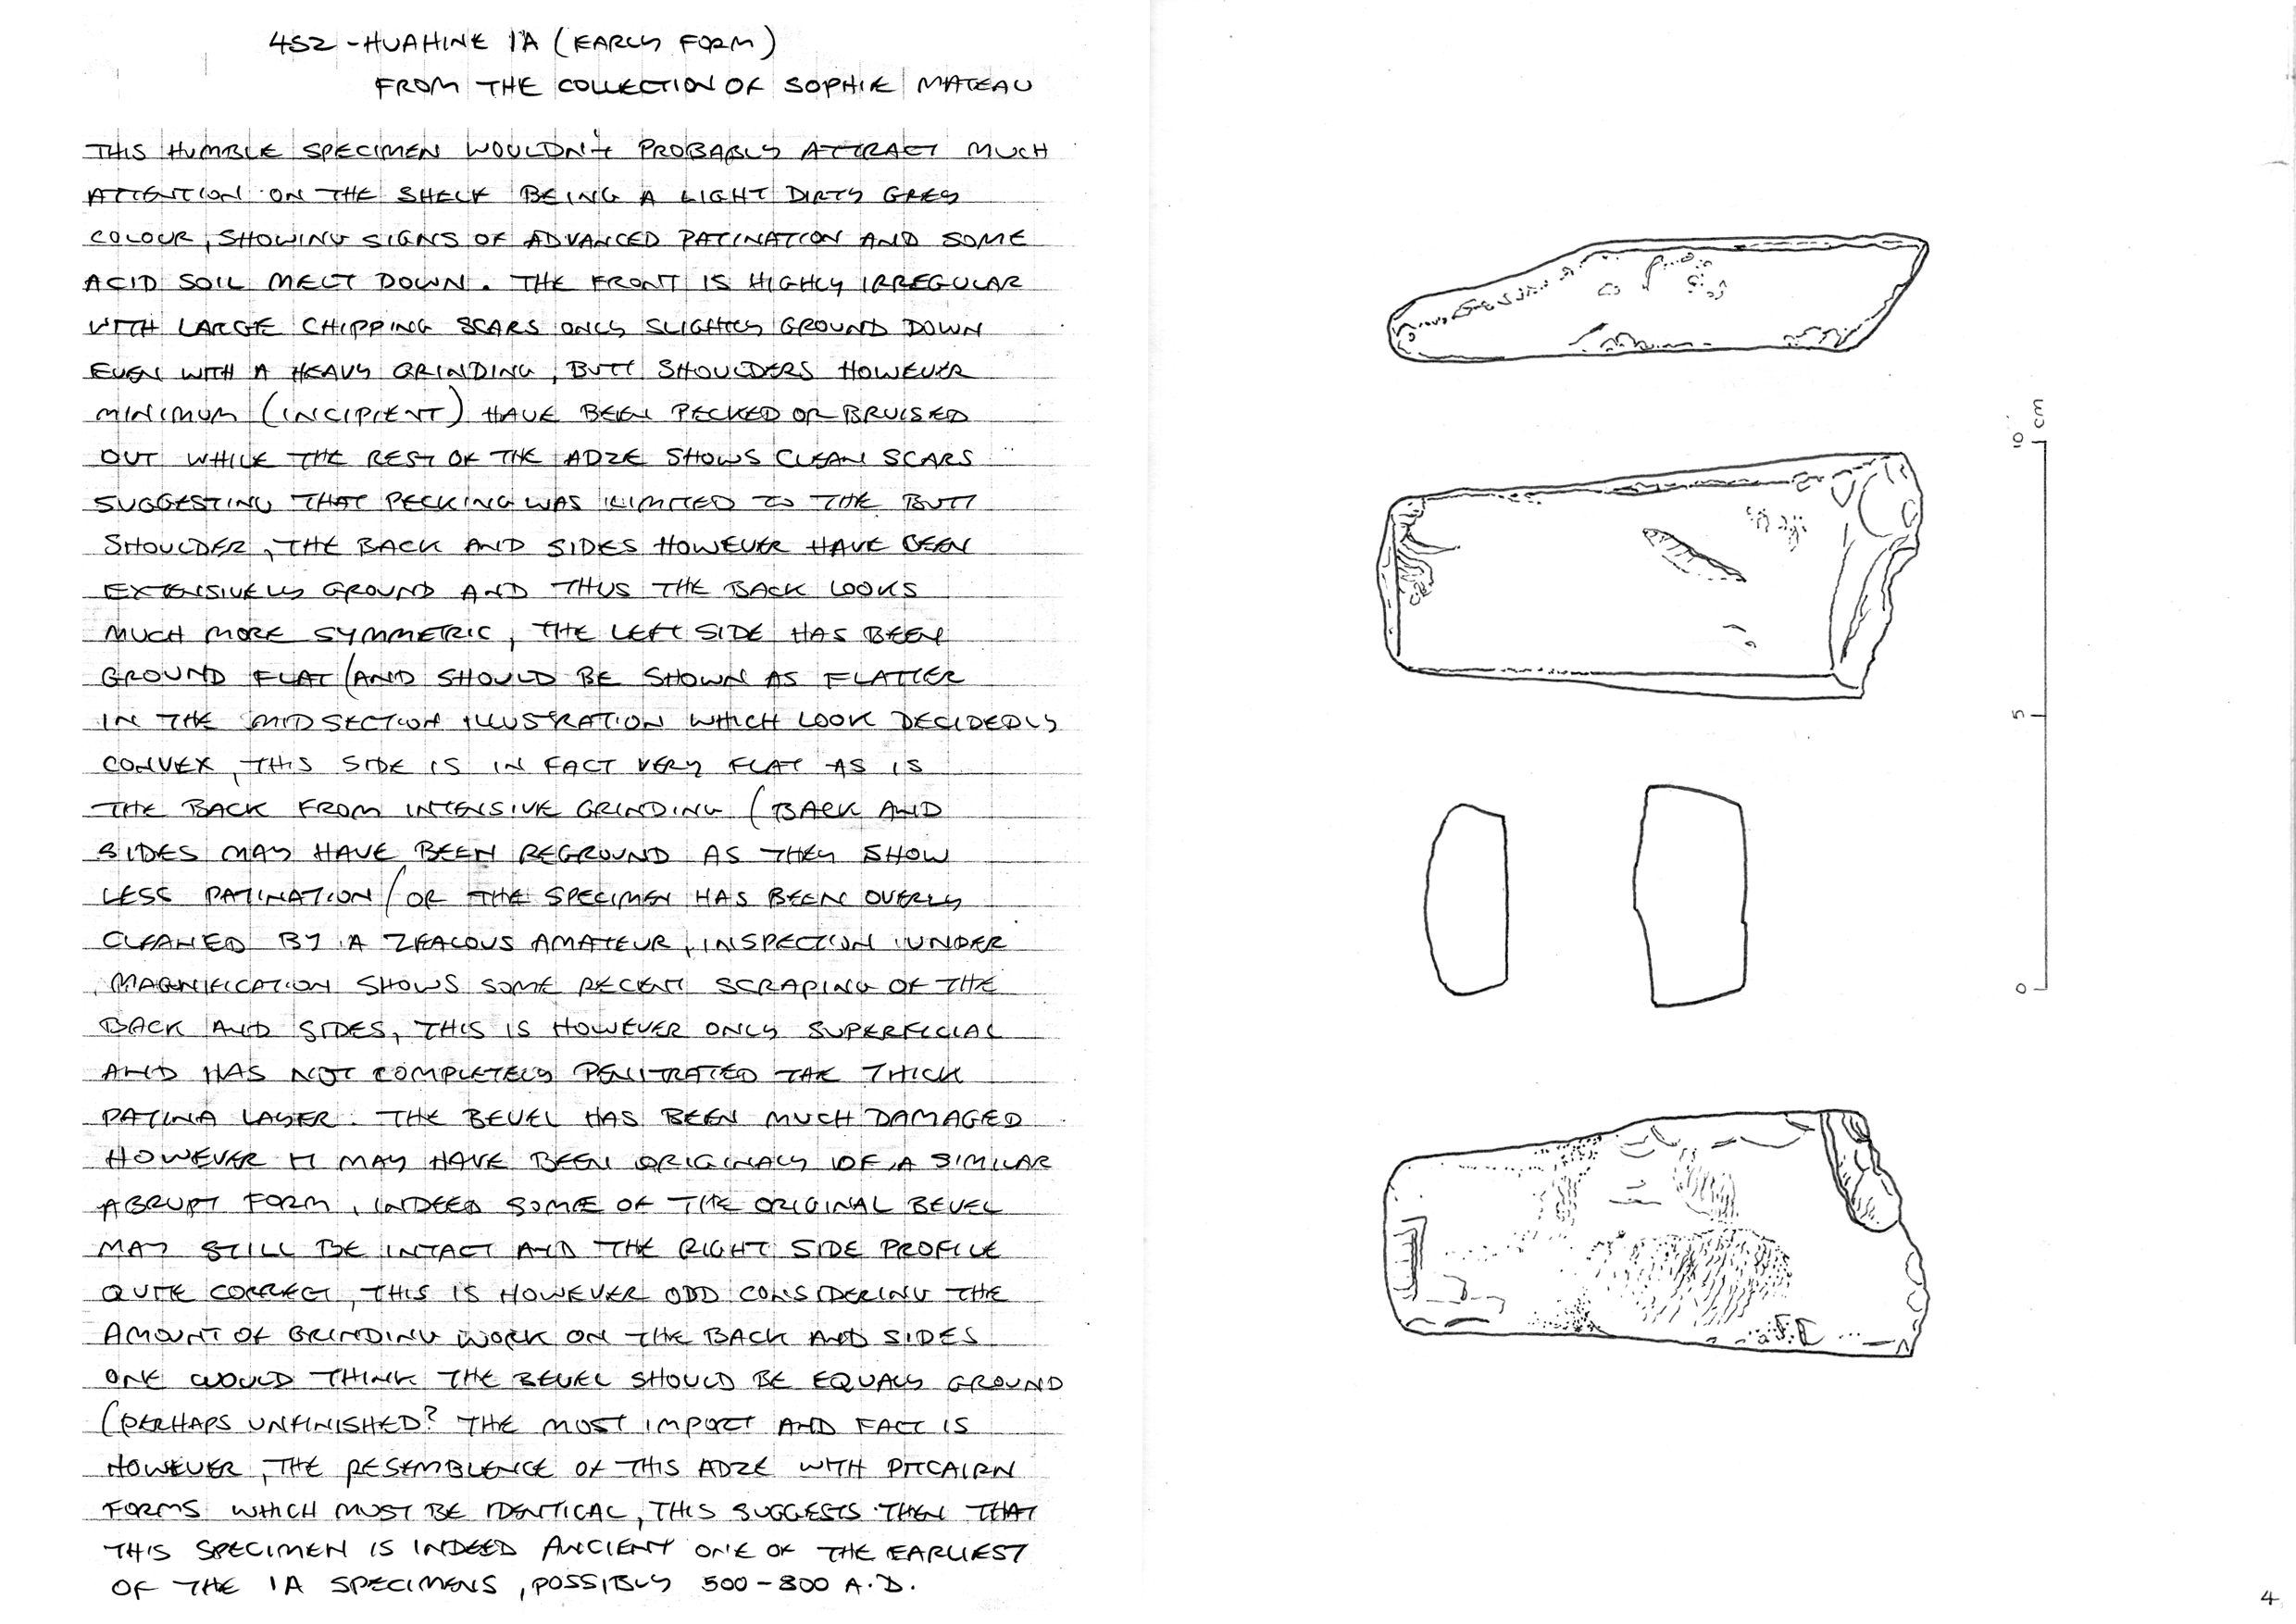 452 - HUAHINE 1A (EARLY FORM)
FROM THE COLLECTION OF SOPHIE MATEAU
THIS HUMBLE SPECIMEN WOULDN'T PROBABLY ATTRACT MUCH
ATTENTION ON THE SHELF BEING A LIGHT DIRTY GREY
COLOUR, SHOWING SIGNS OF ADVANCED PATINATION AND SOME
ACID SOIL MELT DOWN. THE FRONT IS HIGHLY IRREGULAR
WITH LARGE CHIPPING SCARS ONLY SLIGHTLY GROUND DOWN
EVEN WITH A HEAVY GRINDING, BUTT SHOULDERS HOWEVER
MINIMUM (INCIPIENT) HAVE BEEN PECKED OR BRUISED
OUT WHILE THE REST OF THE ADZE SHOWS CLEAN SCARS
SUGGESTING THAT PECKING WAS LIMITED TO THE BUTT
SHOULDER, THE BACK AND SIDES HOWEVER HAVE BEEN
EXTENSIVELY GROUND AND THUS THE BACK LOOKS
MUCH MORE SYMMETRIC, THE LEFT SIDE HAS BEEN
GROUND FLAT (AND SHOULD BE SHOWN AS FLATTER
IN THE MIDSECTION ILLUSTRATION WHICH LOOK DECIDEDLY
CONVEX, THIS SIDE IS IN FACT VERY FLAT AS IS
THE BACK FROM INTENSIVE GRINDING (BACK AND
SIDES MAY HAVE BEEN REGROUND AS THEY SHOW
LESS PATINATION / OR THE SPECIMEN HAS BEEN OVERLY
CLEANED BY A ZEALOUS AMATEUR, INSPECTION UNDER
MAGNIFICATION SHOWS SOME RECENT SCRAPING OF THE
BACK AND SIDES, THIS IS HOWEVER ONLY SUPERFICIAL
AND HAS NOT COMPLETELY PENITRATED THE THICK
PATINA LAYER. THE BEVEL HAS BEEN MUCH DAMAGED
HOWEVER IT MAY HAVE BEEN ORIGINALY OF A SIMILAR
ABRUPT FORM, INDEED SOME OF THE ORIGINAL BEVEL
MAY STILL BE INTACT AND THE RIGHT SIDE PROFILE
QUITE CORRECT, THIS IS HOWEVER ODD CONSIDERING THE
AMOUNT OF GRINDING WORK ON THE BACK AND SIDES
ONE WOULD THINK THE BEVEL SHOULD BE EQUALLY GROUND
(PERHAPS UNFINISHED? THE MOST IMPORT AND FACT IS
HOWEVER, THE RESEMBLENCE OF THIS ADZE WITH PITCAIRN
FORMS WHICH MUST BE IDENTICAL, THIS SUGGESTS THEN THAT
THIS SPECIMEN IS INDEED ANCIENT ONE OF THE EARLIEST
OF THE 1A SPECIMENS, POSSIBLY 500-800 A.D.
10 cm
5
0
4